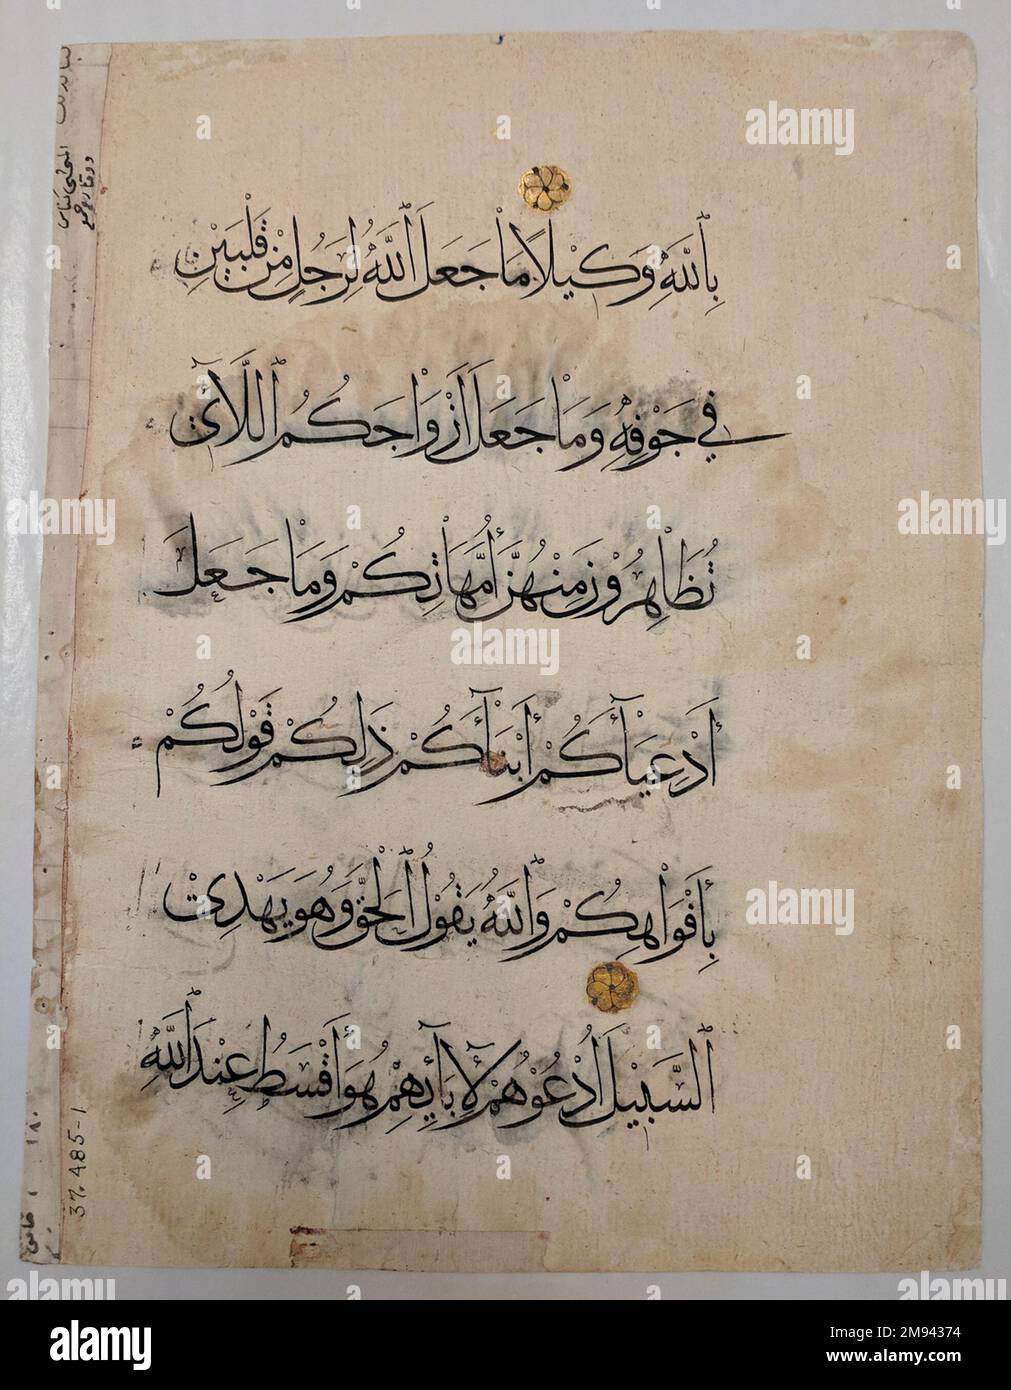 بِاللَّهِ وَكِيلًا مَا جَعَلَ اللَّهُ لِرَجُلٍ مِنْ قَلْبَيْنِ
فِي جَوْفِهِ وَمَا جَعَلَ أَزْوَاجَكُمُ اللَّآئِي
تُظَاهِرُونَ مِنْهُنَّ أُمَّهَاتِكُمْ وَمَا جَعَلَ
أَدْعِيَآءَكُمْ أَبْنَآءَكُمْ ذَلِكُمْ قَوْلُكُمْ
بِأَفْوَاهِكُمْ وَاللَّهُ يَقُولُ الْحَقَّ وَهُوَ يَهْدِي
السَّبِيلَ ادْعُوهُمْ لِآبَآئِهِمْ هُوَ أَقْسَطُ عِنْدَ اللَّهِ
37.485-1
١٨٠
alamy
Image ID: 2M94374
www.alamy.com